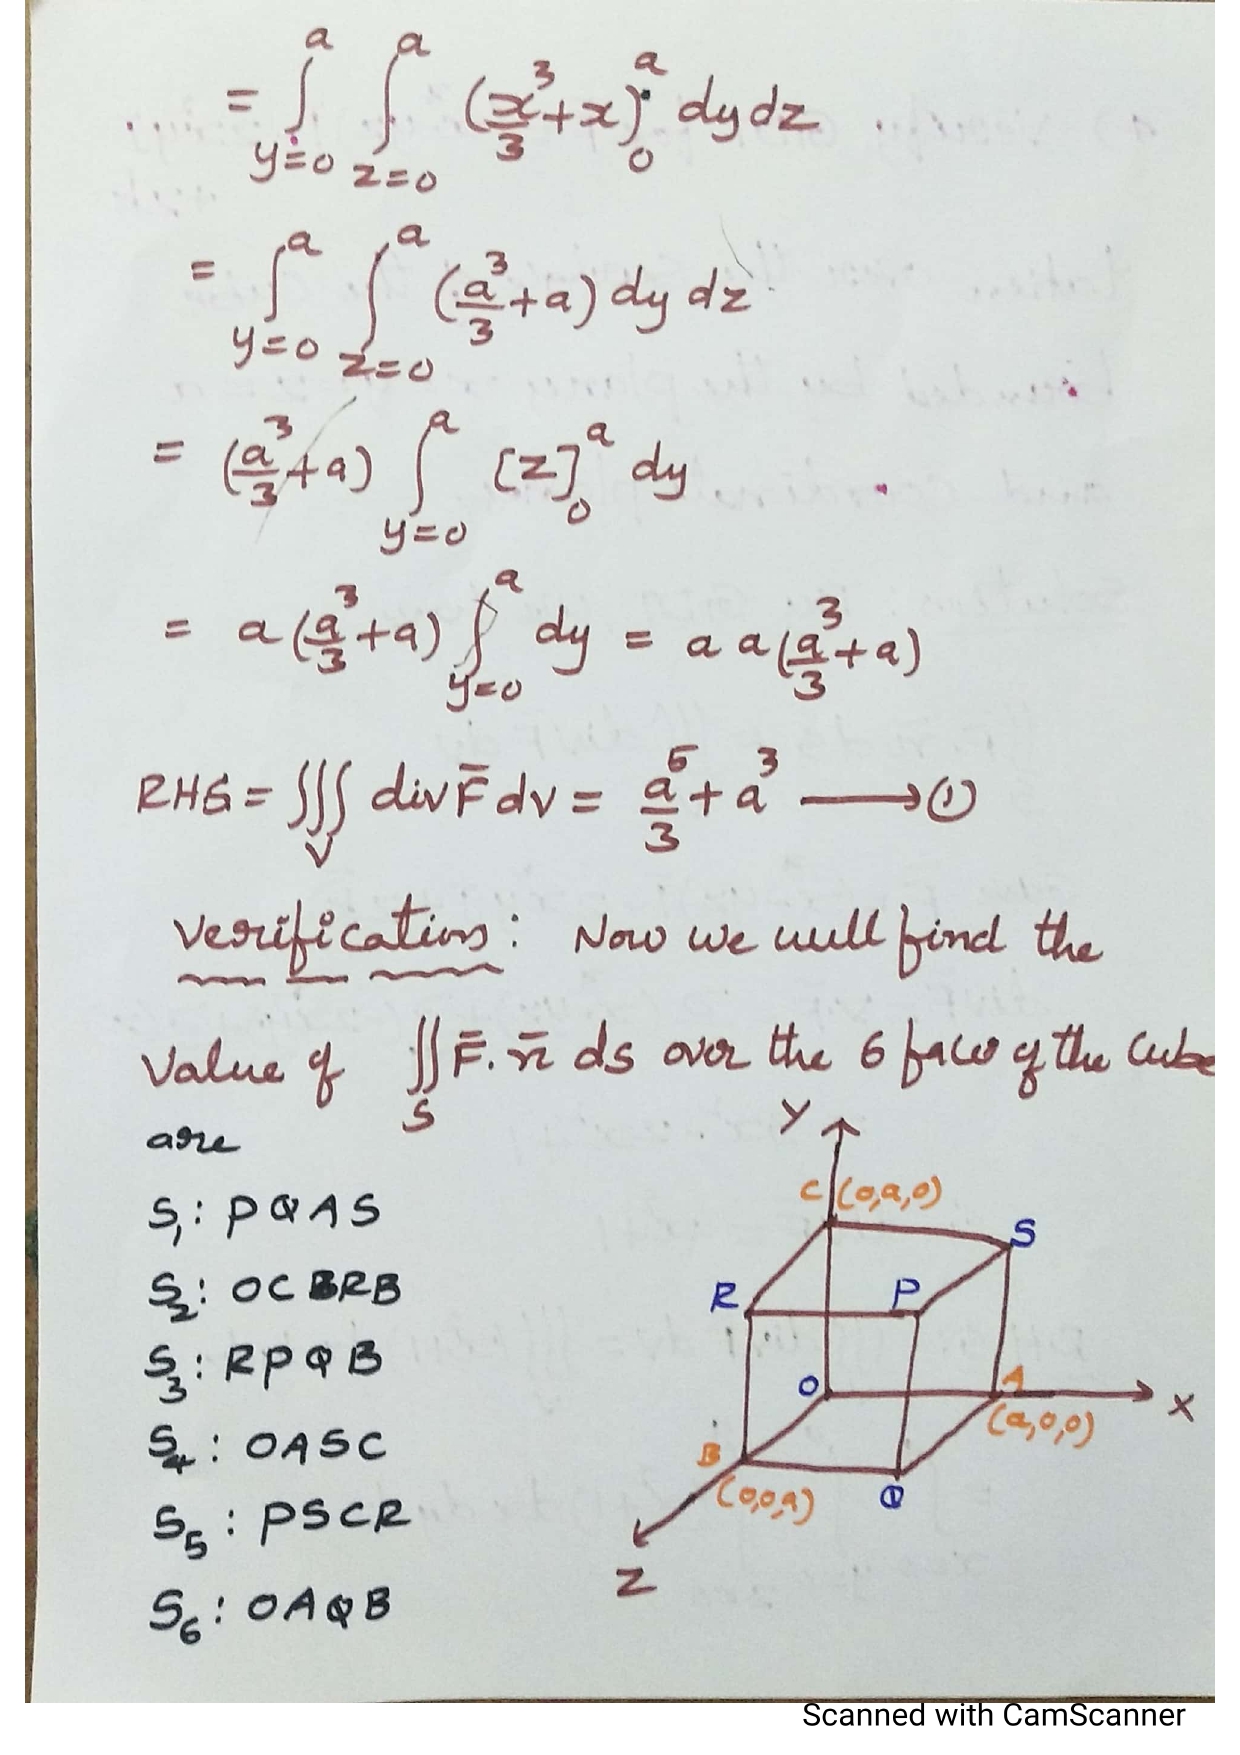 = ∫_{y=0}^{a} ∫_{z=0}^{a} (x³/3 + x)_0^a dy dz
= ∫_{y=0}^{a} ∫_{z=0}^{a} (a³/3 + a) dy dz
= (a³/3 + a) ∫_{y=0}^{a} [z]_0^a dy
= a (a³/3 + a) ∫_{y=0}^{a} dy = a a (a³/3 + a)
RHS = ∭_V div F̄ dv = a⁵/3 + a³ ⟶ ①
Verification : Now we will find the
Value of ∬_S F̄. n̄ ds over the 6 faces of the Cube
are
S₁ : PQAS
S₂ : OCRB
S₃ : RPQB
S₄ : OASC
S₅ : PSCR
S₆ : OAQB
Y
C (0,a,0)
S
R
P
O
A
X
(a,0,0)
B
(0,0,a)
Q
Z
Scanned with CamScanner